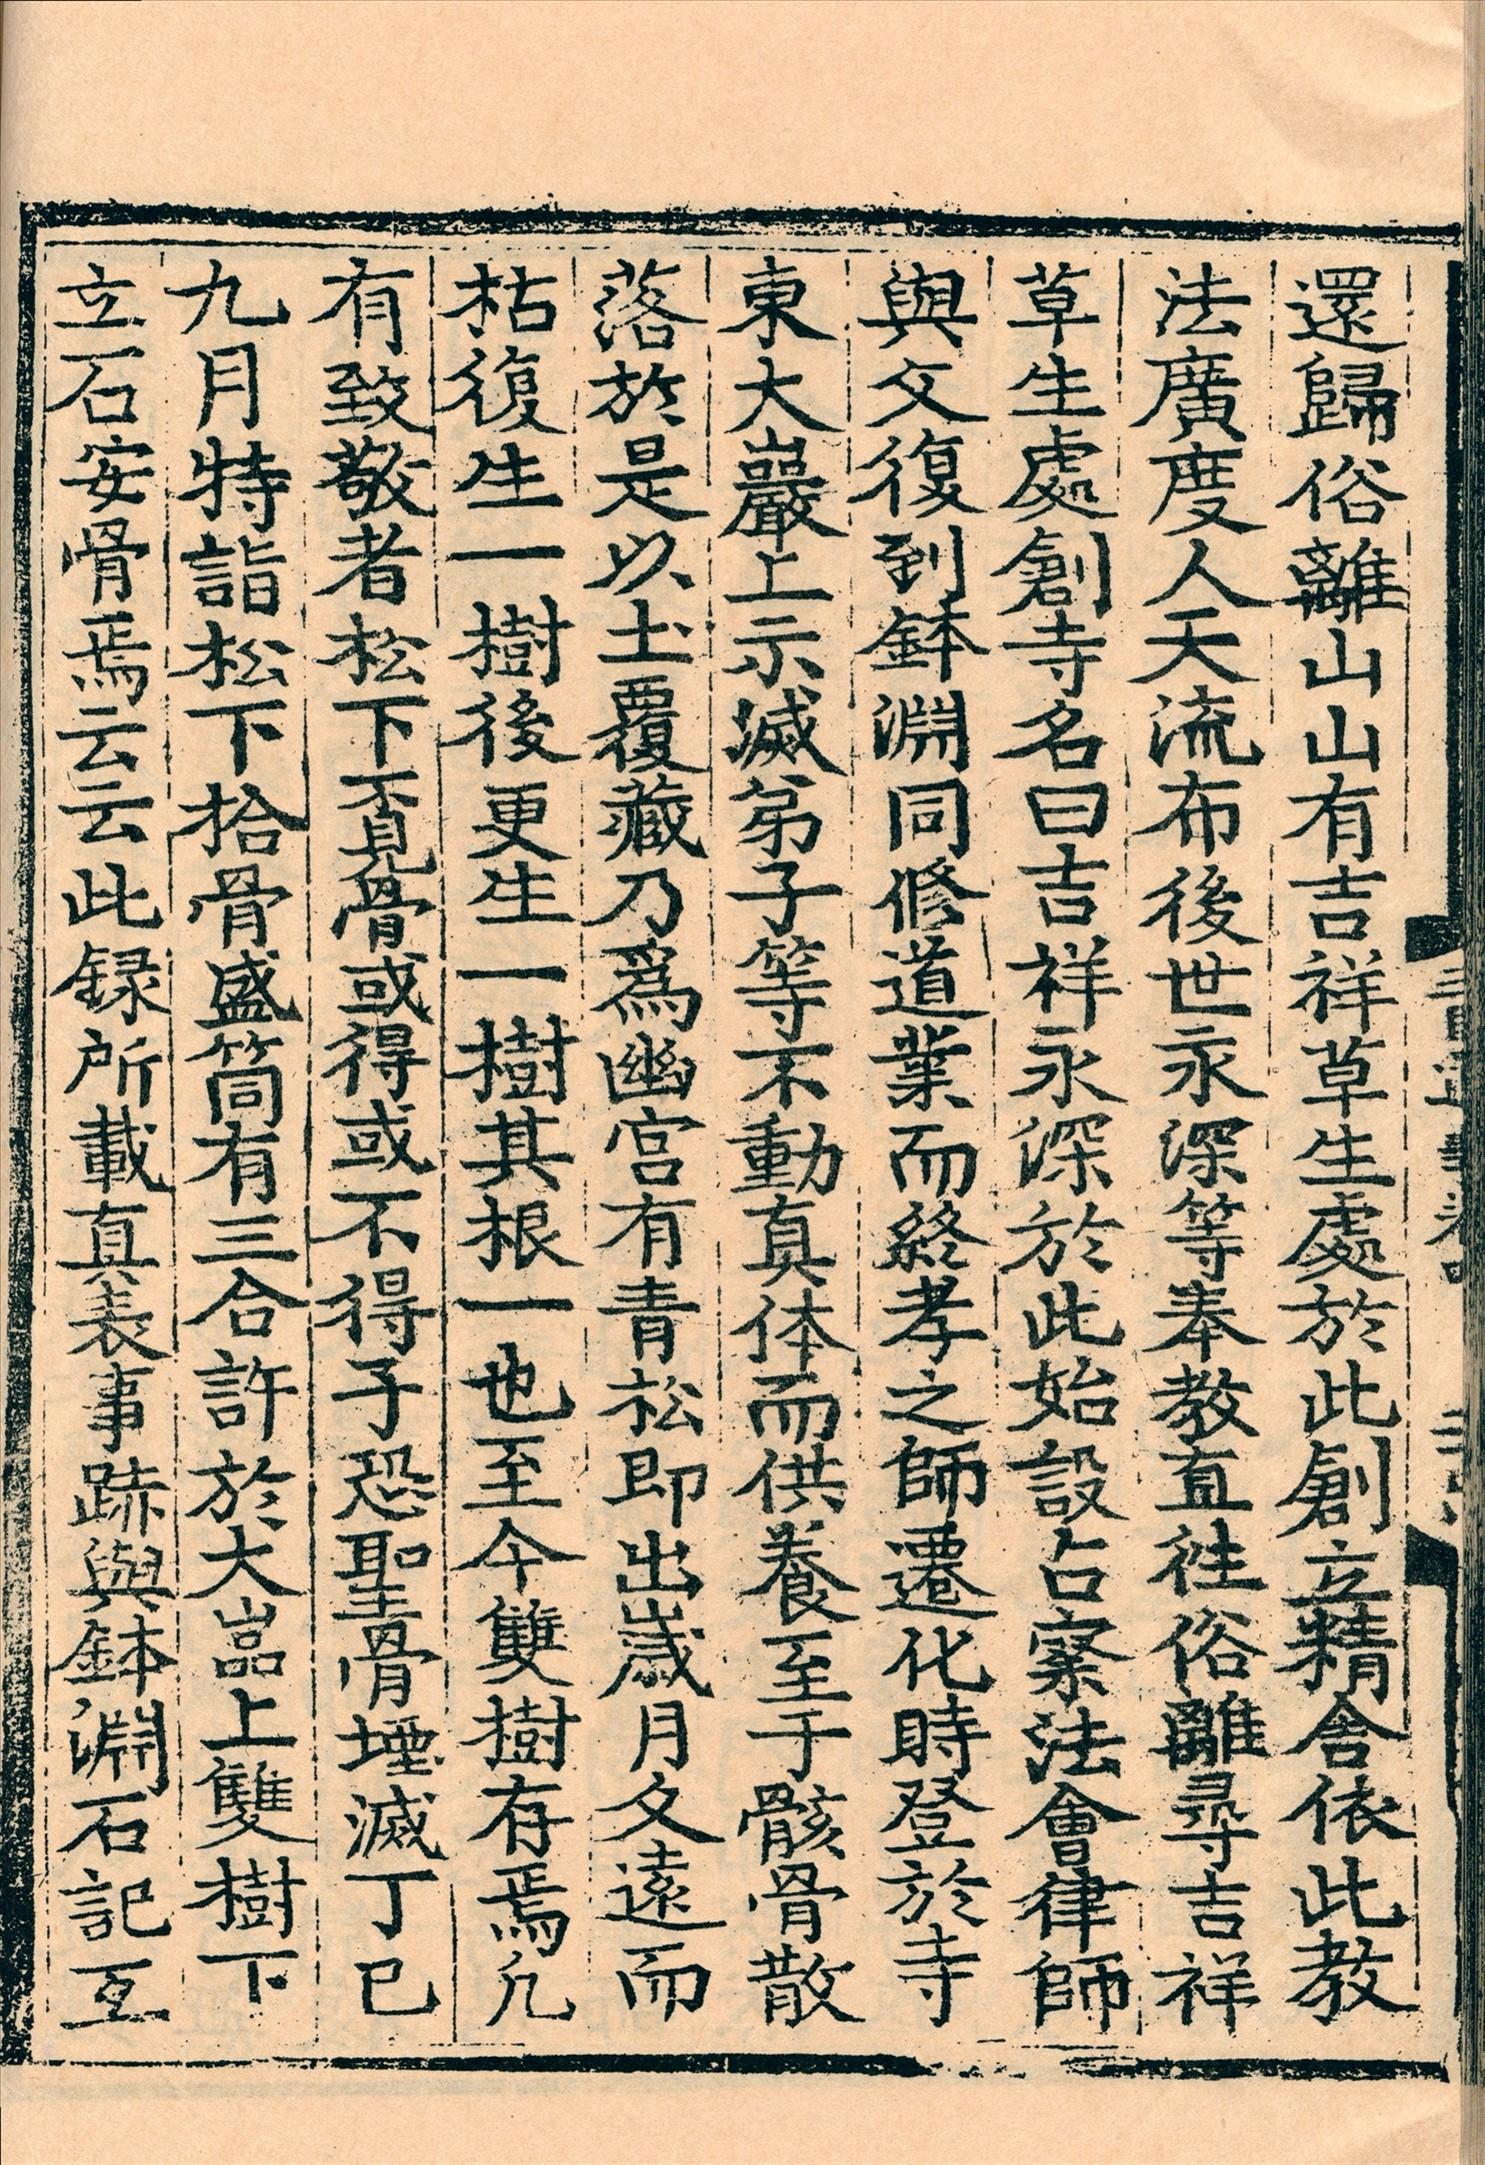 還歸俗離山山有吉祥草生處於此創立精舍依此教
法廣度人天流布後世永深等奉教直徃俗離尋吉祥
草生處創寺名曰吉祥永深於此始設占察法會律師
與父復到鉢淵同修道業而終孝之師遷化時登於寺
東大巖上示滅弟子等不動真体而供養至于骸骨散
落於是以土覆藏乃爲幽宮有青松即出歲月久遠而
枯復生一樹後更生一樹其根一也至今雙樹存焉凡
有致敬者松下覔骨或得或不得予恐聖骨堙滅丁巳
九月特詣松下拾骨盛筒有三合許於大嵓上雙樹下
立石安骨焉云云此録所載真表事跡與鉢淵石記互
三國遺事卷四